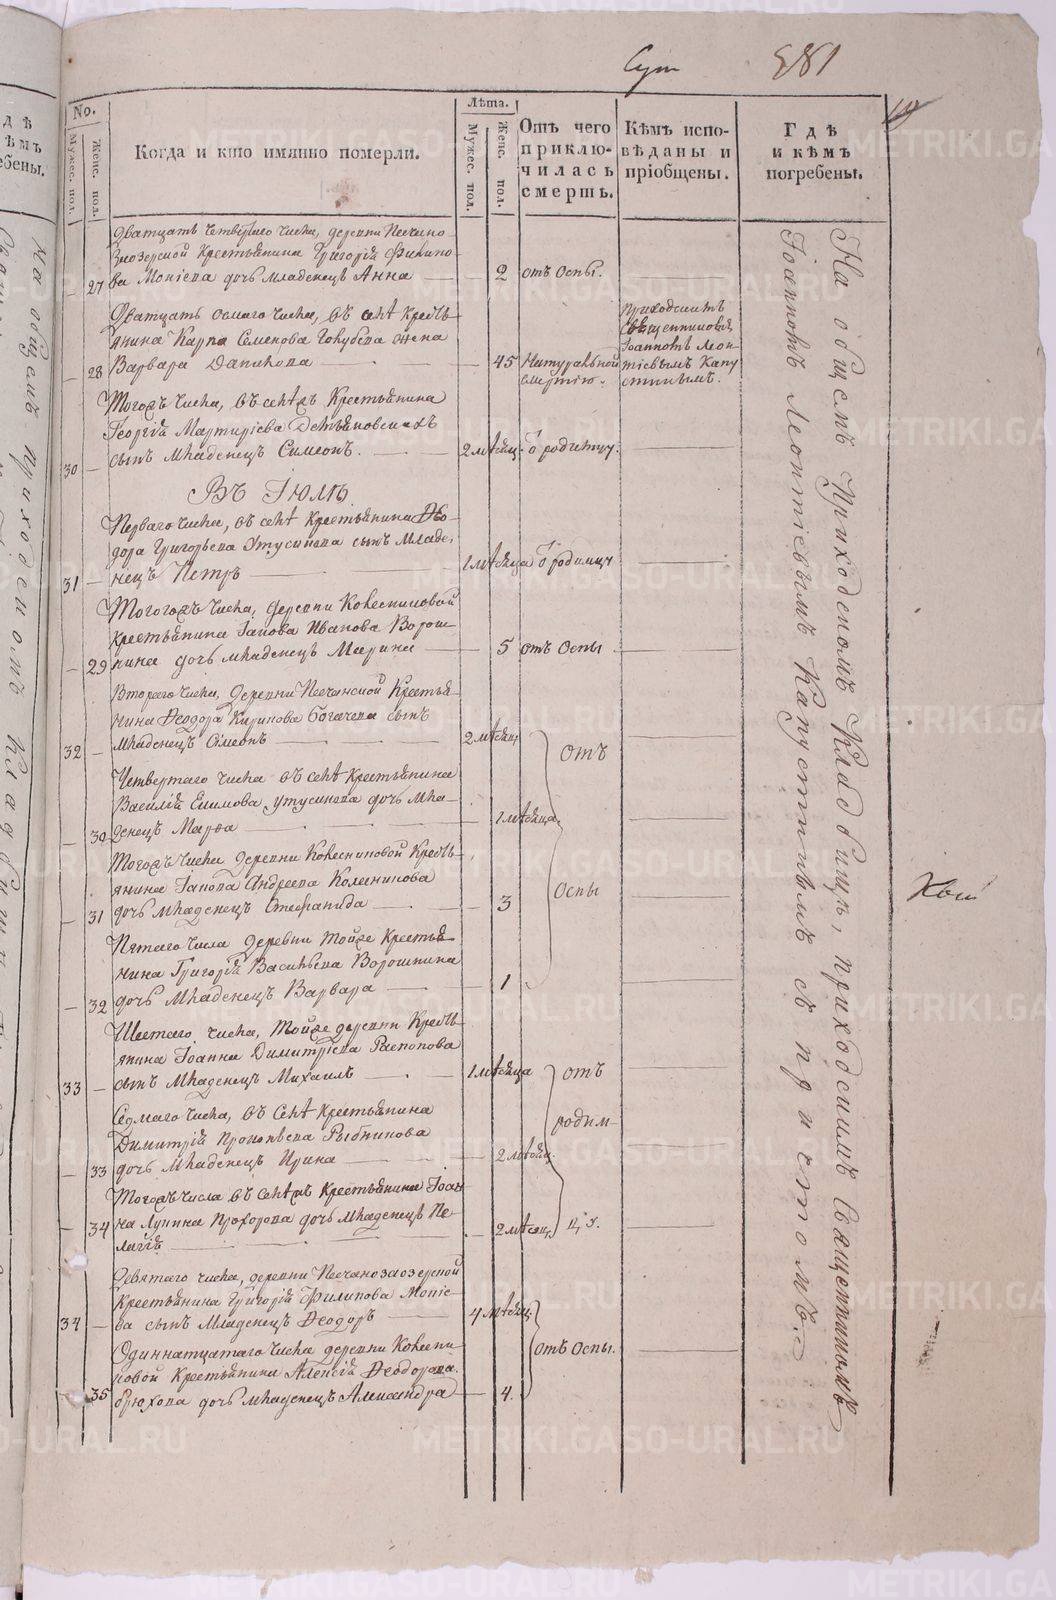 581
No.
Мужес. пол.
Женс. пол.
Когда и кто имянно померли.
Лѣта.
Мужес. пол.
Женс. пол.
Отъ чего
приклю-
чилась
смерть.
Кѣмъ испо-
вѣданы и
пріобщены.
Гдѣ
и кѣмъ
погребены.
Дватцать четвертаго числа, деревни Песчано-
Заозерской крестьянина Григорій Филипо-
27 ва Моніева дочь младенецъ Анна 2 отъ Оспы.
Дватцать осмаго числа, въ селѣ Кресть-
янина Карпа Семенова Гокубева жена
28 Варвара Данилова 45 Натуральной
смертію.
приходскимъ
Священникомъ
Іоанномъ Леон-
тіевымъ Капу
стинымъ.
Тогожъ числа, въ селѣжъ Крестьянина
Георгій Мартирієва
30 сынъ младенецъ Симеонъ. 2 мѣсяц. родимцу.
Въ Іюлѣ
Перваго числа, въ селѣ Крестьянина Ѳео-
дора Григорьева Утусикова сынъ младе-
31 нецъ Петръ 1 мѣсяца родимцу
Тогожъ числа, деревни Колесниковой
крестьянина Іакова Иванова Ворош-
29 нина дочь младенецъ Марина 5 отъ Оспы
Втораго числа, деревни Песчанской Крестья-
нина Ѳеодора Кирикова Богачева сынъ
32 младенецъ Симеонъ 2 мѣсяц.
Четвертаго числа въ селѣ Крестьянина
Василій Екимова Утусикова дочь мла-
30 денецъ Марѳа 1 мѣсяца
Тогожъ числа деревни Колесниковой Кресть-
янина Іакова Андреева Колесникова
31 дочь младенецъ Стефанида 3
Пятаго числа деревни тойже Крестья-
нина Григорій Васильева Ворошнина
32 дочь младенецъ Варвара 1
отъ
Оспы
Шестаго числа, тойже деревни Кресть-
янина Іоанна Димитріева Распопова
33 сынъ младенецъ Михаилъ 1 мѣсяца
Седмаго числа, въ селѣ Крестьянина
Димитрій Прокопьева Рыбникова
33 дочь младенецъ Ирина 2 мѣсяц.
Тогожъ числа въ селѣжъ Крестьянина Іоан
на Лупина Прохорова дочь младенецъ Пе-
34 лагія 2 мѣсяц.
отъ
родим
цу.
Девятаго числа, деревни Песчанозаозерской
крестьянина Григорій Филипова Моніе-
34 ва сынъ младенецъ Ѳеодоръ 4 мѣсяц.
Одиннатцатаго числа деревни Колесни
ковой Крестьянина Алексій Ѳеодорова
35 брюхова дочь младенецъ Александра 4.
отъ Оспы.
На общемъ приходскомъ Кладбищѣ, приходскимъ Священникомъ
Іоанномъ Леонтіевымъ Капустинымъ съ причтомъ.
METRIKI.GASO-URAL.RU